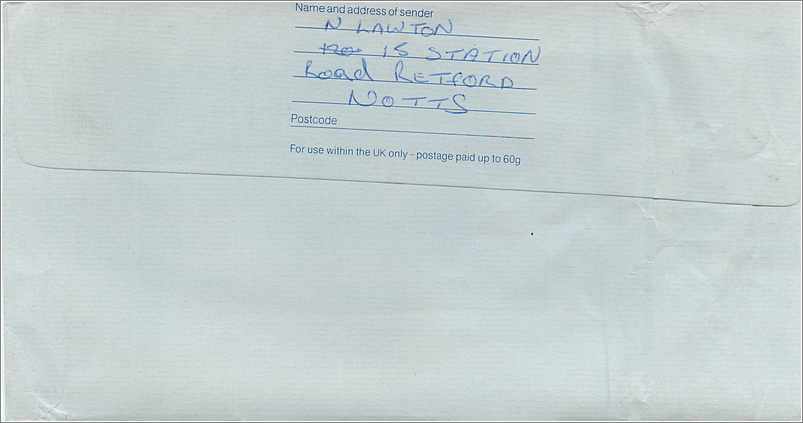 Name and address of sender
N LAWTON
15 STATION
Road RETFORD
NOTTS
Postcode
For use within the UK only – postage paid up to 60g